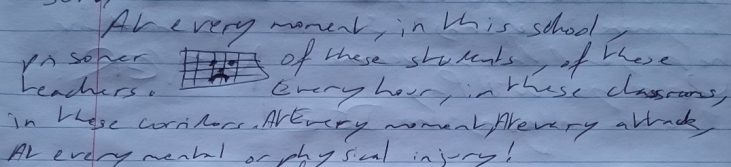 At every moment, in this school,
prisoner of these students, of these
teachers. Every hour, in these classrooms,
in these corridors. At Every moment, At every attack,
At every mental or physical injury!